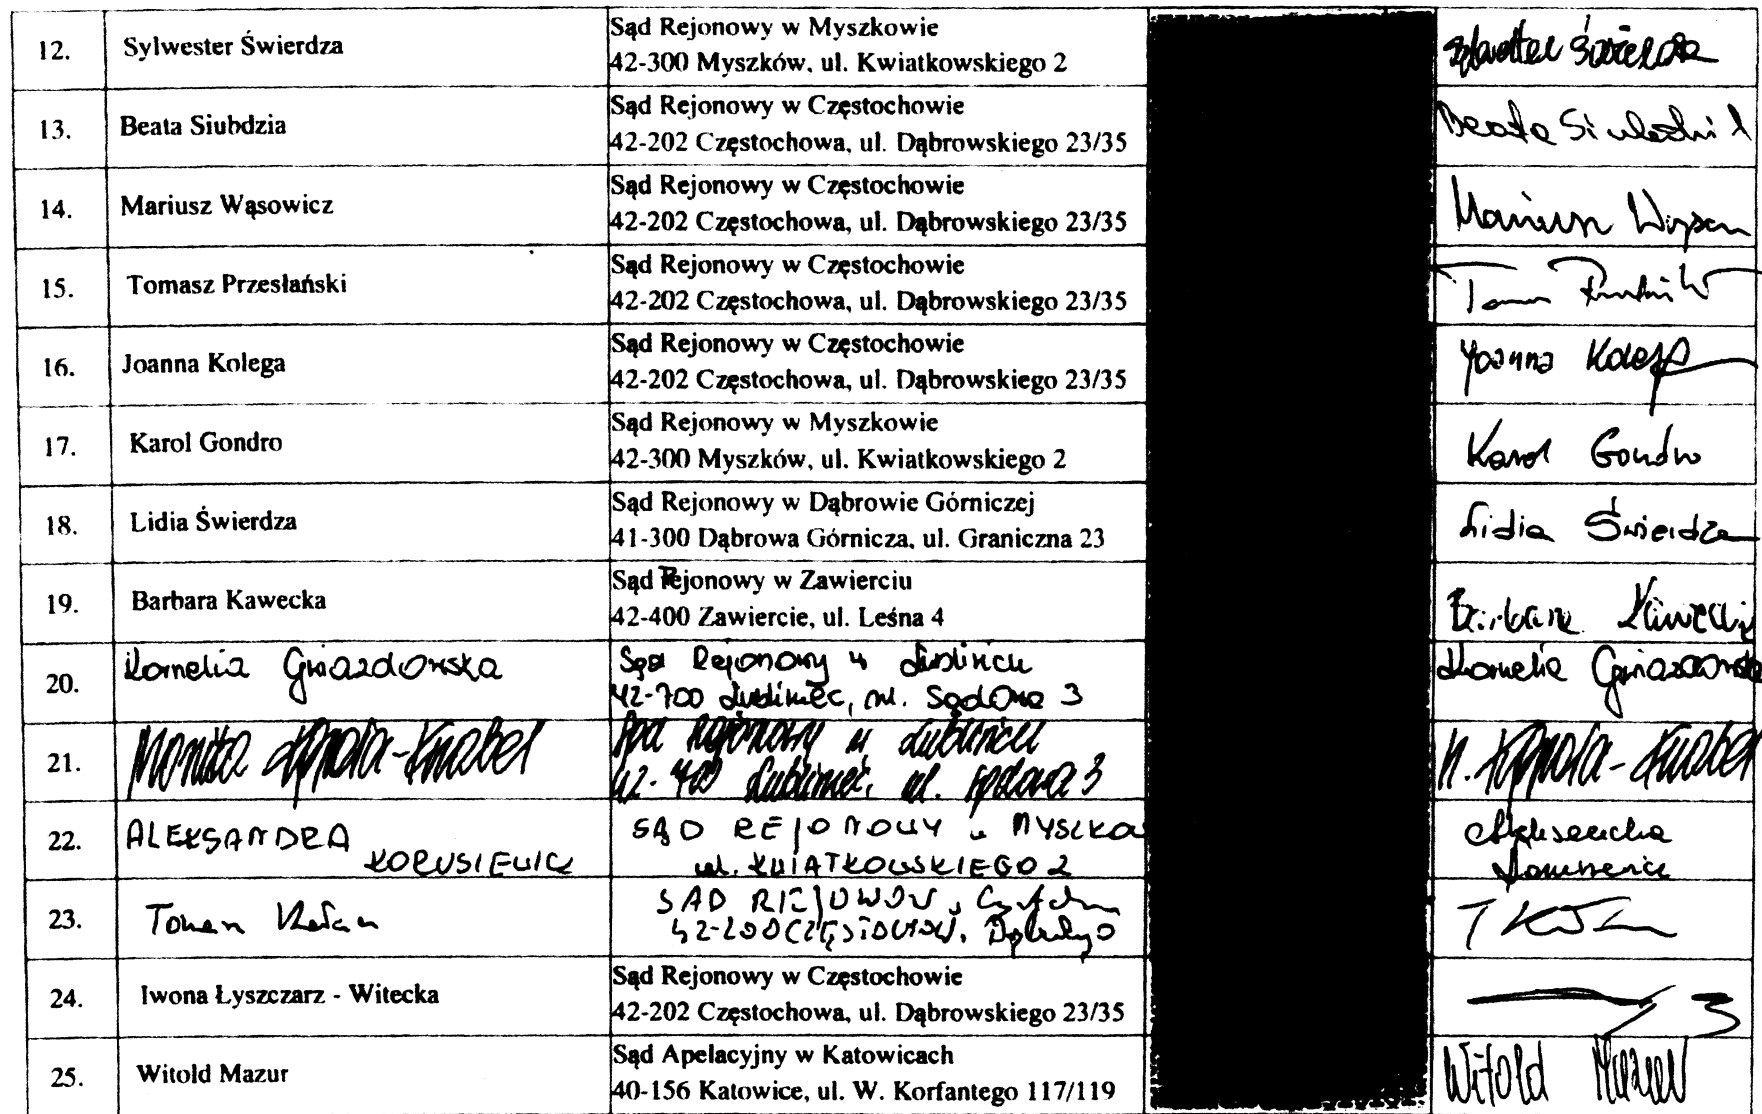 12. Sylwester Świerdza
Sąd Rejonowy w Myszkowie
42-300 Myszków, ul. Kwiatkowskiego 2
13. Beata Siubdzia
Sąd Rejonowy w Częstochowie
42-202 Częstochowa, ul. Dąbrowskiego 23/35
Beata
14. Mariusz Wąsowicz
Sąd Rejonowy w Częstochowie
42-202 Częstochowa, ul. Dąbrowskiego 23/35
Mariusz
15. Tomasz Przesłański
Sąd Rejonowy w Częstochowie
42-202 Częstochowa, ul. Dąbrowskiego 23/35
16. Joanna Kolega
Sąd Rejonowy w Częstochowie
42-202 Częstochowa, ul. Dąbrowskiego 23/35
Joanna Kolega
17. Karol Gondro
Sąd Rejonowy w Myszkowie
42-300 Myszków, ul. Kwiatkowskiego 2
Karol Gondro
18. Lidia Świerdza
Sąd Rejonowy w Dąbrowie Górniczej
41-300 Dąbrowa Górnicza, ul. Graniczna 23
Lidia Świerdza
19. Barbara Kawecka
Sąd Rejonowy w Zawierciu
42-400 Zawiercie, ul. Leśna 4
20. Kornelia Gwiazdowska
Sąd Rejonowy w Lublińcu
42-700 Lubliniec, ul. Sądowa 3
Kornelia Gwiazdowska
21. Monika -Knabel
Sąd Rejonowy w Lublińcu
42-700 Lubliniec, ul. Sądowa 3
22. ALEKSANDRA
KORUSIEWICZ
SĄD REJONOWY w
ul. KWIATKOWSKIEGO 2
Aleksandra
23.
SĄD
24. Iwona Łyszczarz - Witecka
Sąd Rejonowy w Częstochowie
42-202 Częstochowa, ul. Dąbrowskiego 23/35
25. Witold Mazur
Sąd Apelacyjny w Katowicach
40-156 Katowice, ul. W. Korfantego 117/119
Witold Mazur